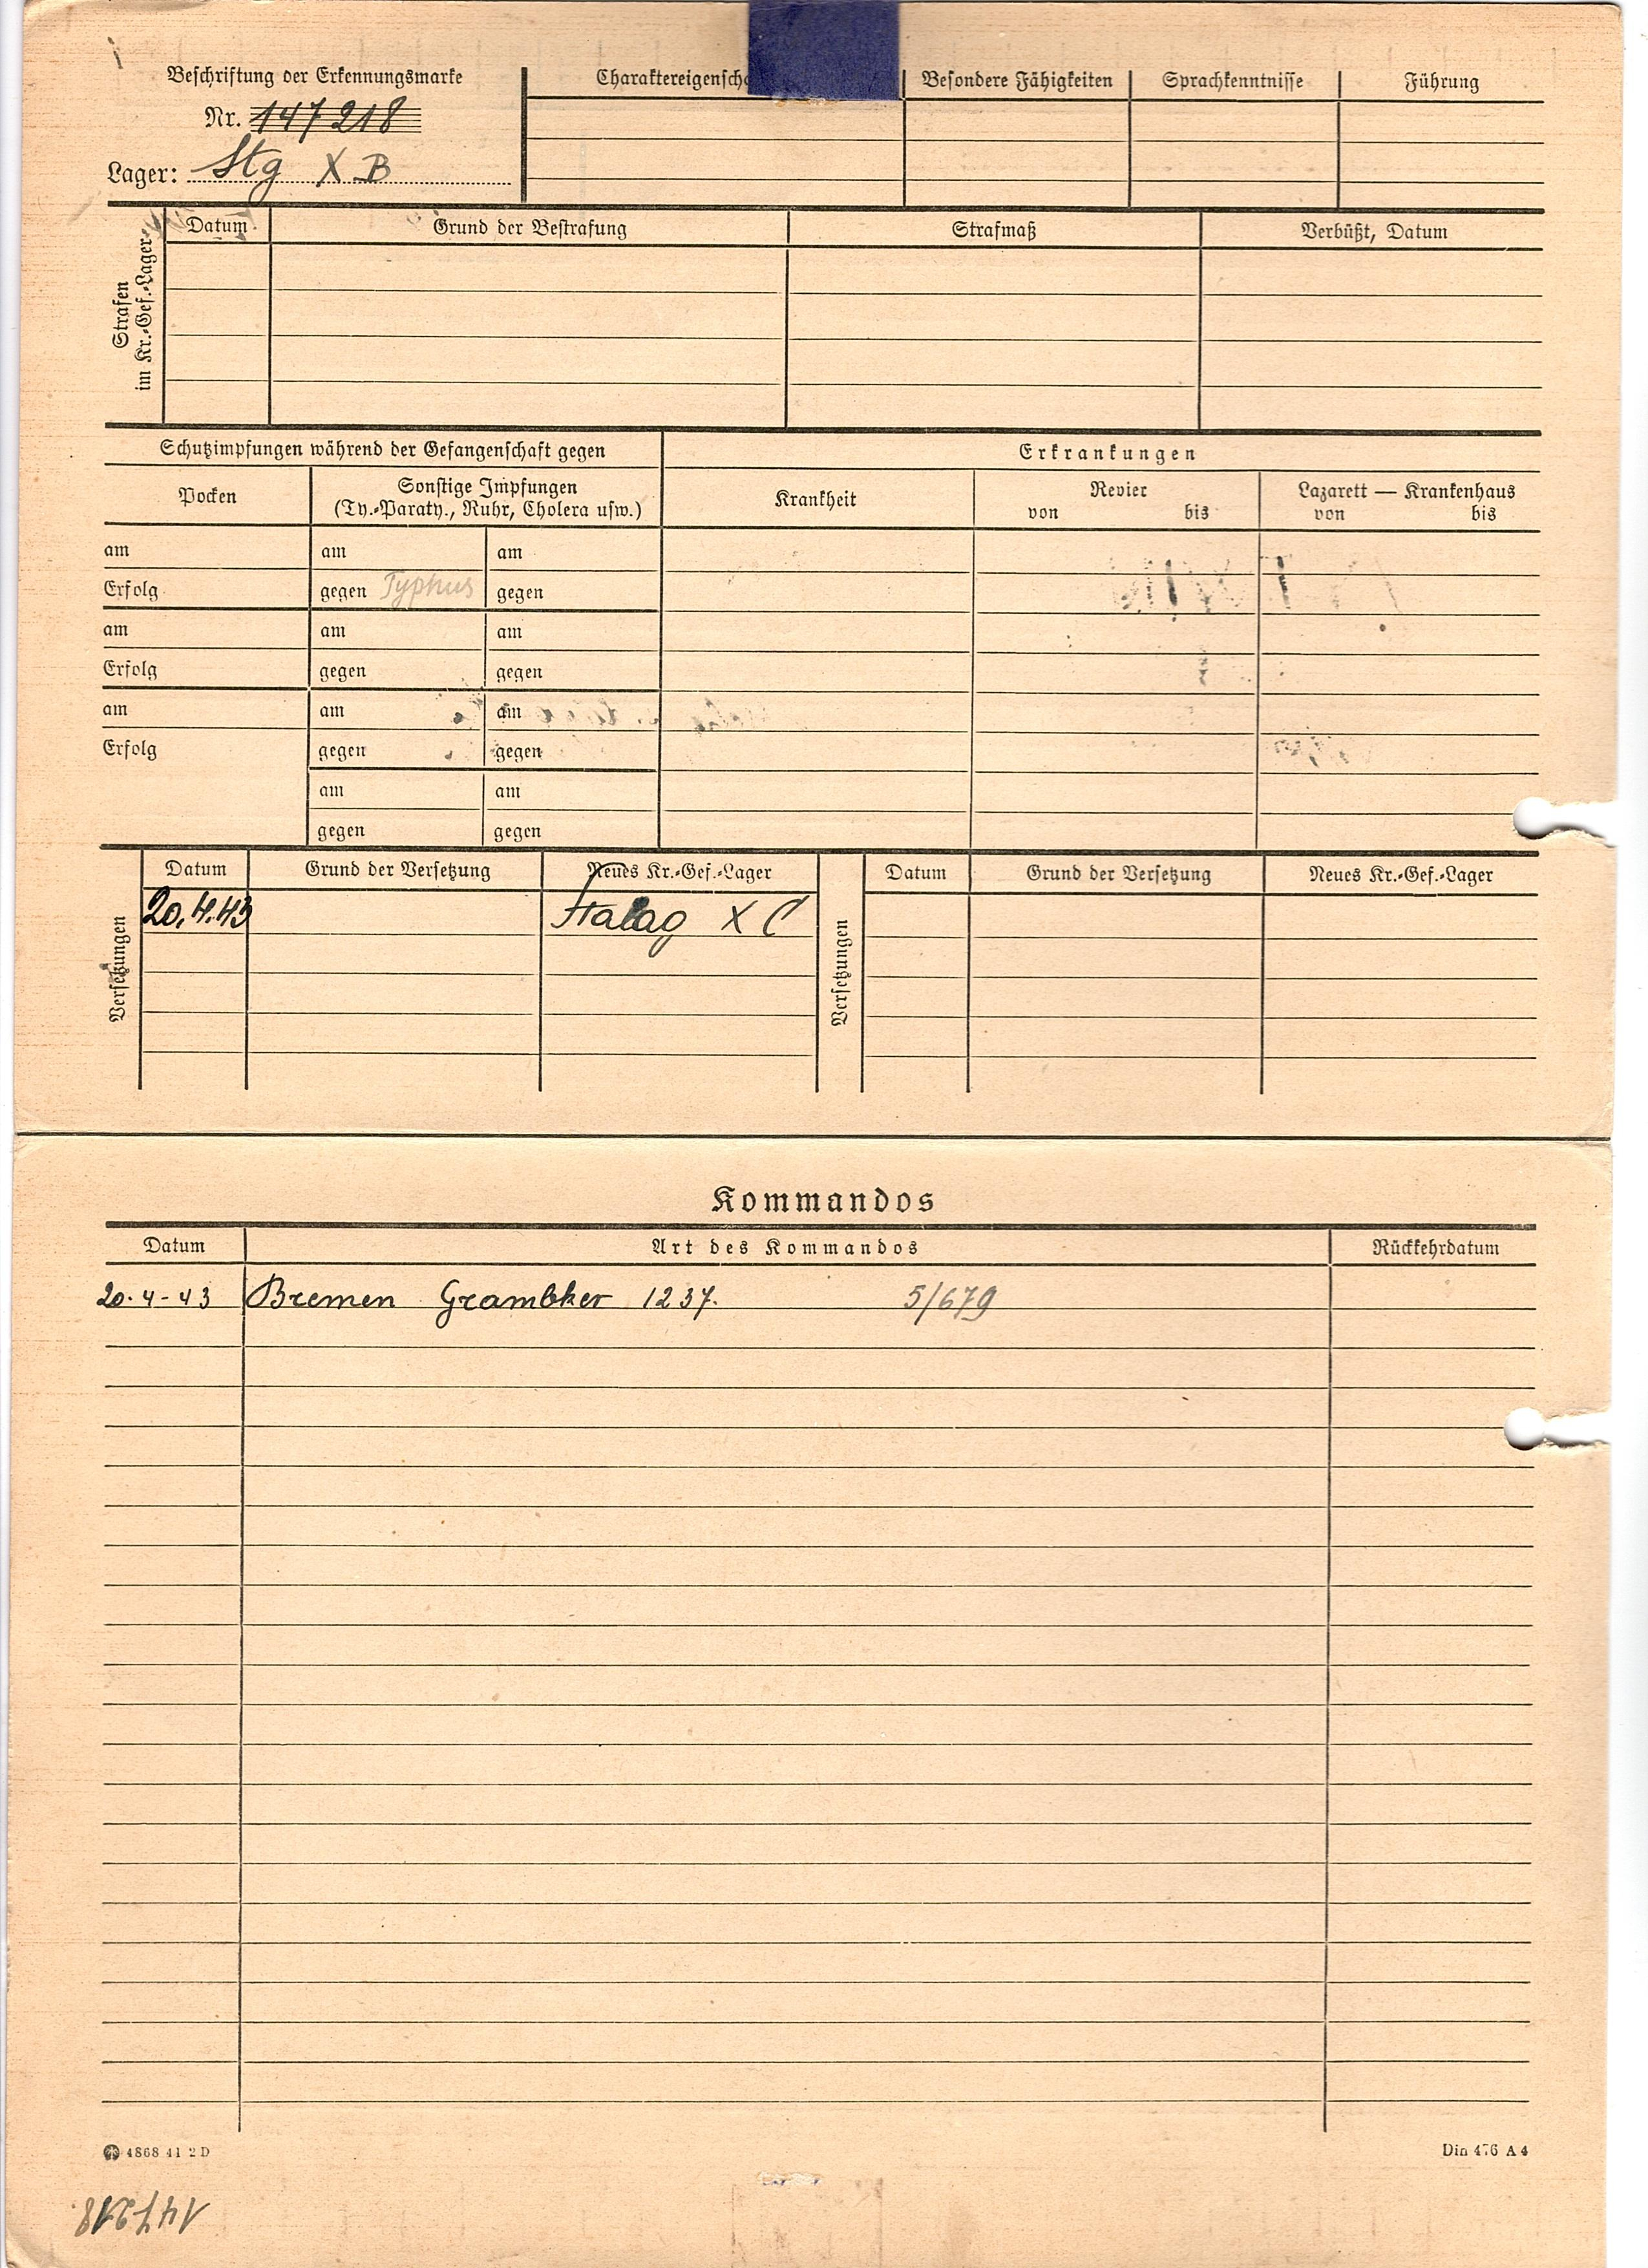 Beschriftung der Erkennungsmarke
Nr. 147218
Lager: Stg X B
Besondere Fähigkeiten Sprachkenntnisse Führung
Strafen
im Kr.-Gef.-Lager
Datum Grund der Bestrafung Strafmaß Verbüßt, Datum
Schutzimpfungen während der Gefangenschaft gegen Erkrankungen
Pocken Sonstige Impfungen Krankheit Revier Lazarett — Krankenhaus
(Ty.-Paraty., Ruhr, Cholera usw.) von bis von bis
am am am
Erfolg gegen Typhus gegen
am am am
Erfolg gegen gegen
am am am
Erfolg gegen gegen
am am
gegen gegen
Versetzungen
Datum Grund der Versetzung Neues Kr.-Gef.-Lager
20.4.43 Stalag X C
Versetzungen
Datum Grund der Versetzung Neues Kr.-Gef.-Lager
Kommandos
Datum Art des Kommandos Rückkehrdatum
20.4-43 Bremen Grambker 1237. 5/679
4868 41 2 D Din 476 A 4
147218